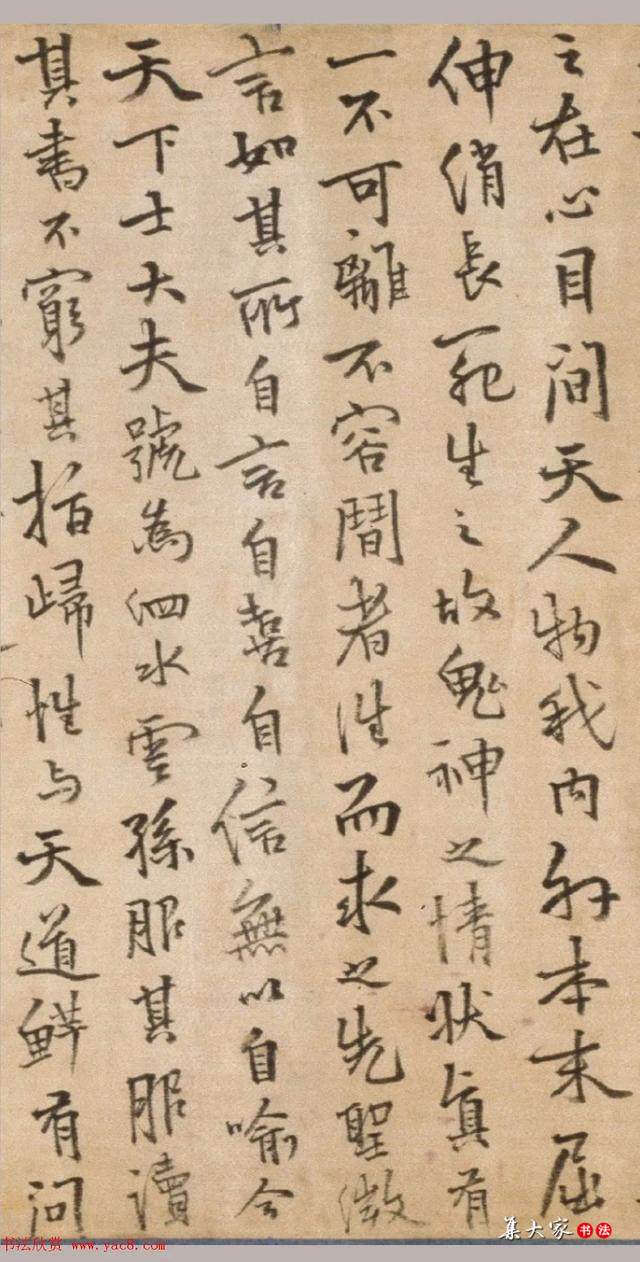 之在心目间天人物我内外本末屈
伸消長死生之故鬼神之情状真有
一不可離不容閒者往而求之先聖微
言如其所自言自喜自信無以自喻今
天下士大夫號為泗水雲孫服其服讀
其書不窮其指歸性与天道鲜有问
集大家书法
书法欣赏 www.yac8.com